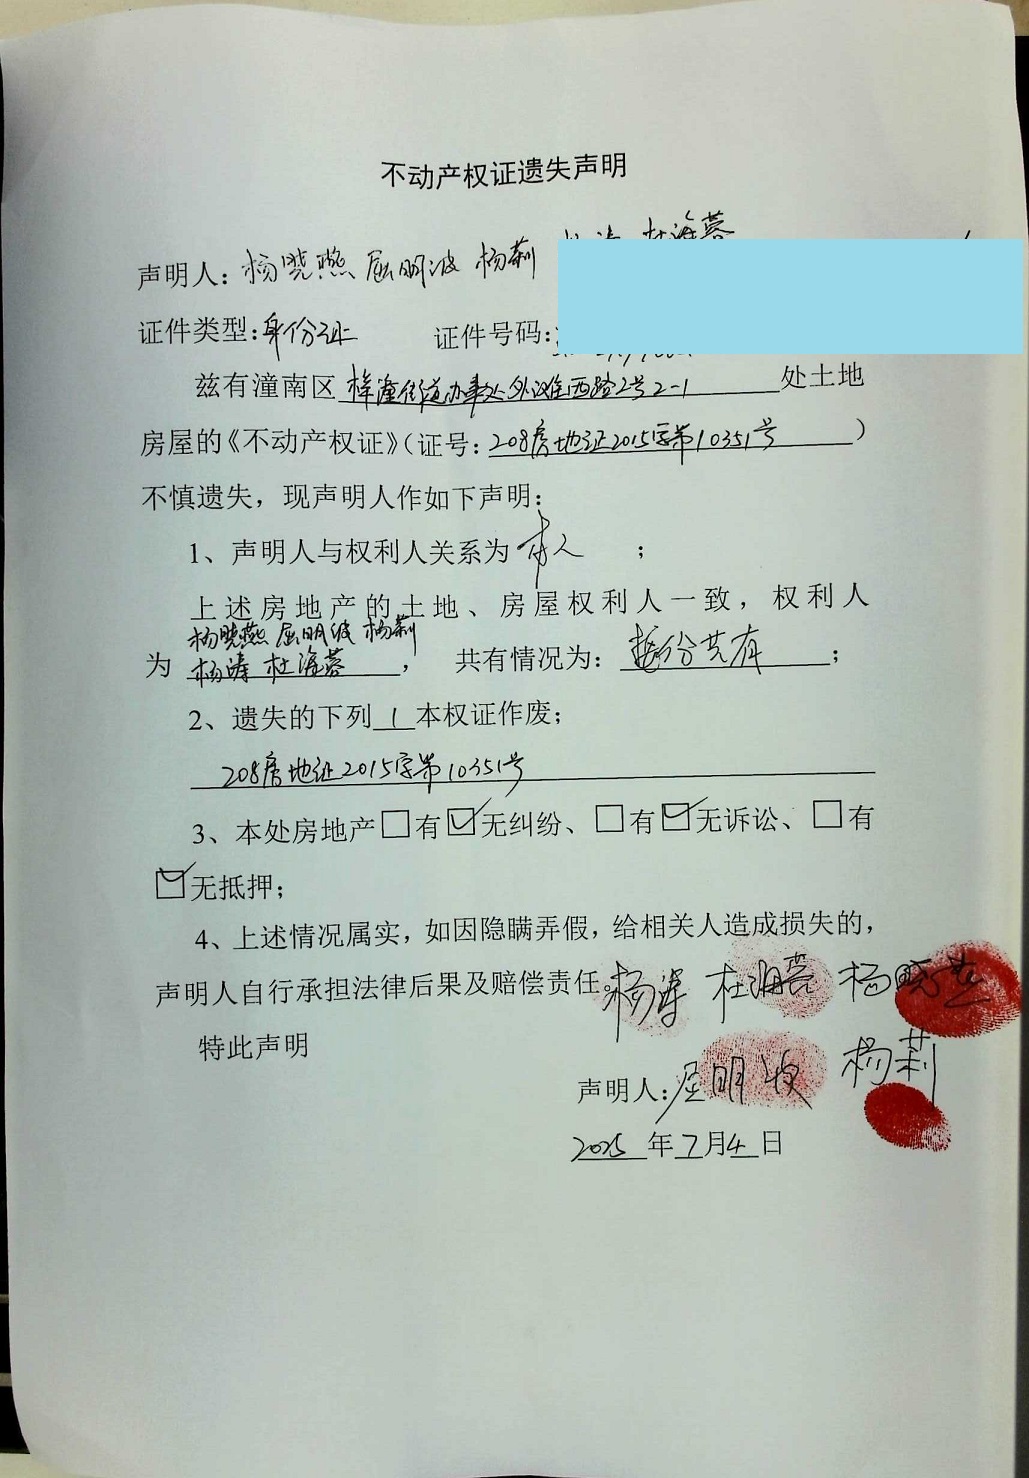 不动产权证遗失声明
声明人：杨晓燕 屈明波 杨莉 杨涛 杜海蓉
证件类型：身份证 证件号码：
兹有潼南区梓潼街道办事处外滩西路2号2-1处土地
房屋的《不动产权证》（证号：208房地证2015字第10351号）
不慎遗失，现声明人作如下声明：
1、声明人与权利人关系为 本人 ；
上述房地产的土地、房屋权利人一致，权利人
杨晓燕 屈明波 杨莉
为 杨涛 杜海蓉 ， 共有情况为：按份共有 ；
2、遗失的下列 1 本权证作废；
208房地证2015字第10351号
3、本处房地产□有☑无纠纷、□有☑无诉讼、□有
☑无抵押；
4、上述情况属实，如因隐瞒弄假，给相关人造成损失的，
声明人自行承担法律后果及赔偿责任。杨涛 杜海蓉 杨晓燕
特此声明
声明人：屈明波 杨莉
2025年7月4日